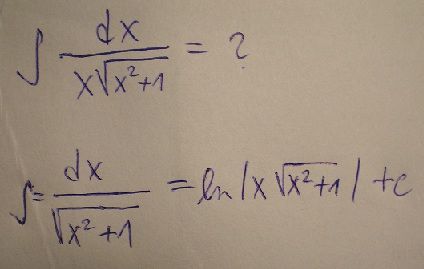 ∫ dx / (x√(x²+1)) = ?
∫= dx / √(x²+1) = ln|x √(x²+1)| + c